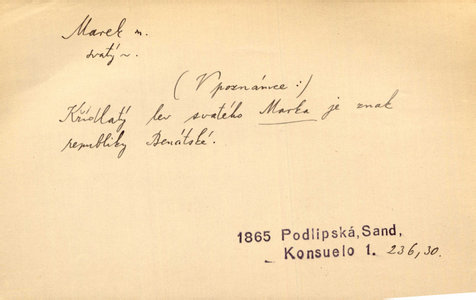 Marek m.
svatý ~.
(V poznámce:)
Křídlatý lev svatého Marka je znak
republiky Benátské.
1865 Podlipská, Sand,
Konsuelo 1. 236,30.